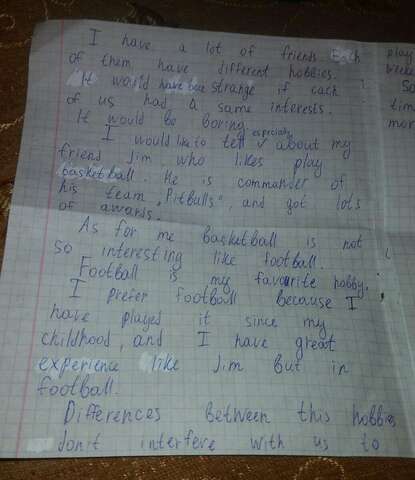 I have a lot of friends. Each
of them have different hobbies.
It would have bee strange if each
of us had a same interests.
It would be boring.
especially
I would like to tell v about my
friend Jim, who likes play
basketball. He is commander of
his team „Pitbulls", and got lots
of awards.
As for me basketball is not
so interesting like football.
Football is my favourite hobby.
I prefer football because I
have played it since my
childhood, and I have great
experience like Jim but in
football.
Differences between this hobbies
don't interfere with us to
play
So
tim
mor